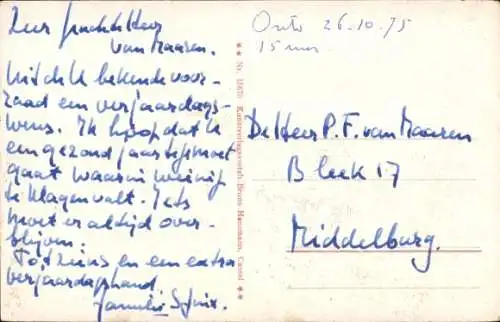 Zeer geachte Heer
van Maaren.
Uit de bekende voor-
raad een verjaardags-
wens. Ik hoop dat U
een gezond jaar tegemoet
gaat waarin weinig
te klagen valt. Iets
moet er altijd over-
blijven.
Tot ziens en een extra
verjaardagshand.
Familie
Ontv 26.10.75
15 uur
De Heer P. F. van Maaren
Bleek 17
Middelburg.
** Nr. 15670 Kunstverlagsanstalt Bruno Hansmann, Cassel **